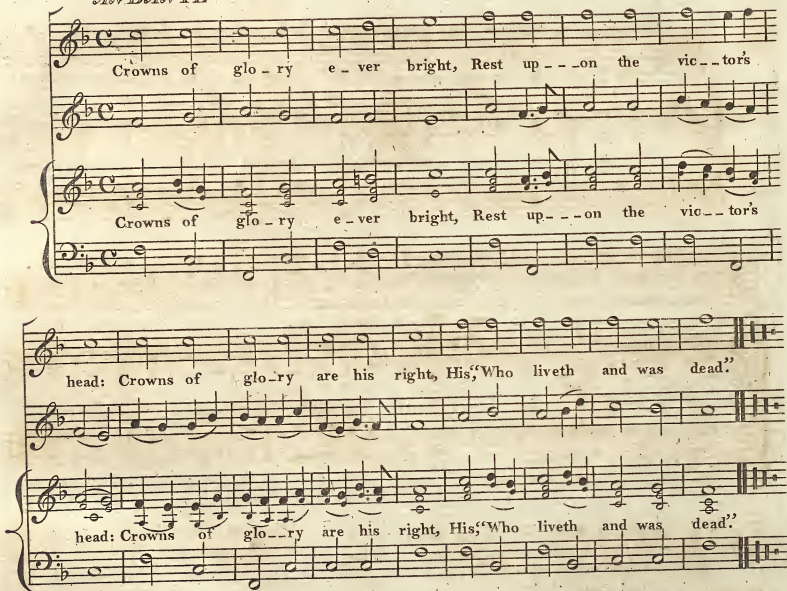 Crowns of glo_ry e_ver bright, Rest up___on the vic__tor's
Crowns of glo_ry e_ver bright, Rest up___on the vic__tor's
head: Crowns of glo_ry are his right, His,“Who liveth and was dead.”
head: Crowns of glo__ry are his right, His,“Who liveth and was dead.”